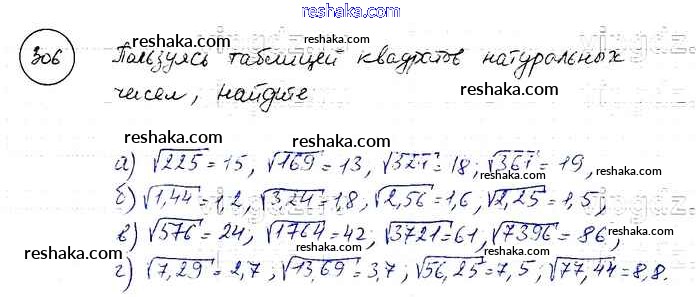 reshaka.com
306 reshaka.com reshaka.com
Пользуясь таблицей квадратов натуральных
чисел, найдите reshaka.com
reshaka.com reshaka.com
а) √225 = 15, √169 = 13, √324 = 18; √361 = 19,
reshaka.com reshaka.com
б) √1,44 = 1,2, √3,24 = 1,8, √2,56 = 1,6, √2,25 = 1,5,
в) √576 = 24, √1764 = 42; √3721 = 61, √7396 = 86,
reshaka.com reshaka.com
г) √7,29 = 2,7; √13,69 = 3,7; √56,25 = 7,5; √77,44 = 8,8.
reshaka.com reshaka.com